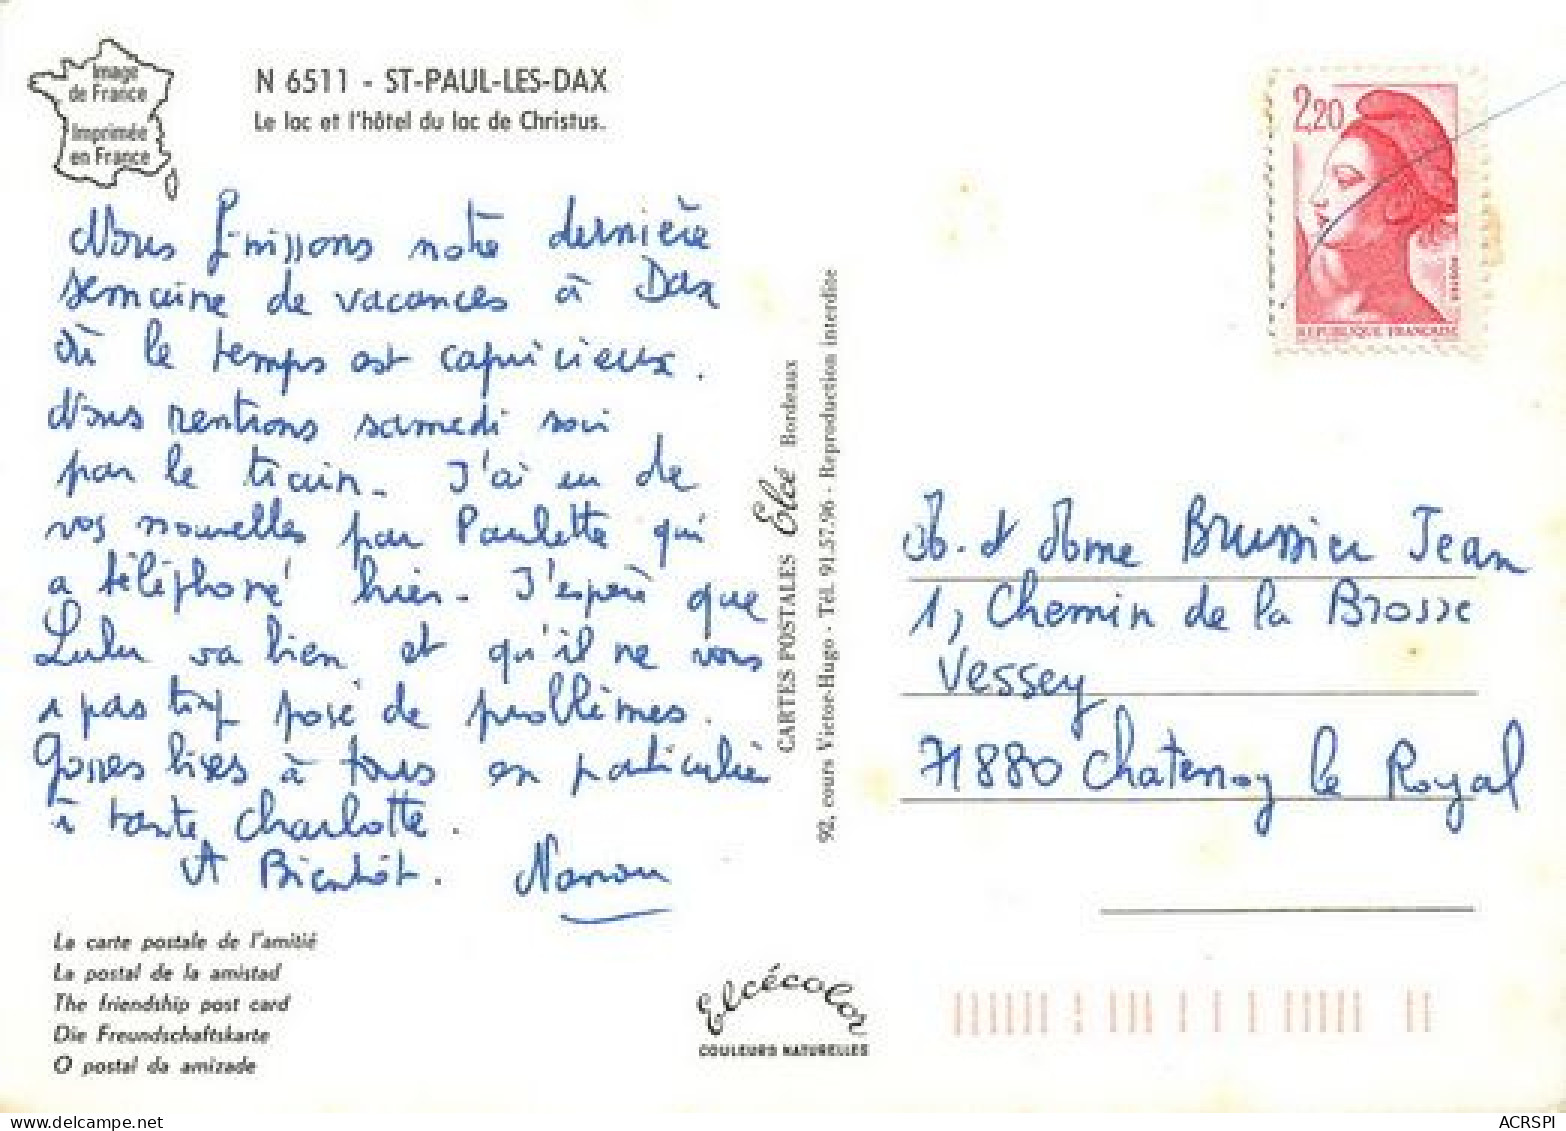 Image
de France
Imprimée
en France
N 6511 - ST-PAUL-LES-DAX
Le lac et l'hôtel du lac de Christus.
Nous finissons notre dernière
semaine de vacances à Dax
où le temps est capricieux.
Nous rentrons samedi soir
par le train. J'ai eu de
vos nouvelles par Paulette qui
a téléphoné hier. J'espère que
Lulu va bien et qu'il ne vous
a pas trop posé de problèmes.
Grosses bises à tous en particulier
à tante Charlotte.
A Bientôt. Nanou
La carte postale de l'amitié
La postal de la amistad
The friendship post card
Die Freundschaftskarte
O postal da amizade
CARTES POSTALES Elcé Bordeaux
92, cours Victor-Hugo - Tél. 91.57.96 - Reproduction interdite
Elcécolor
COULEURS NATURELLES
2,20
REPUBLIQUE FRANÇAISE
M. et Mme Brussier Jean
1, Chemin de la Brosse
Vessey
71880 Chatenoy le Royal
ACRSPI